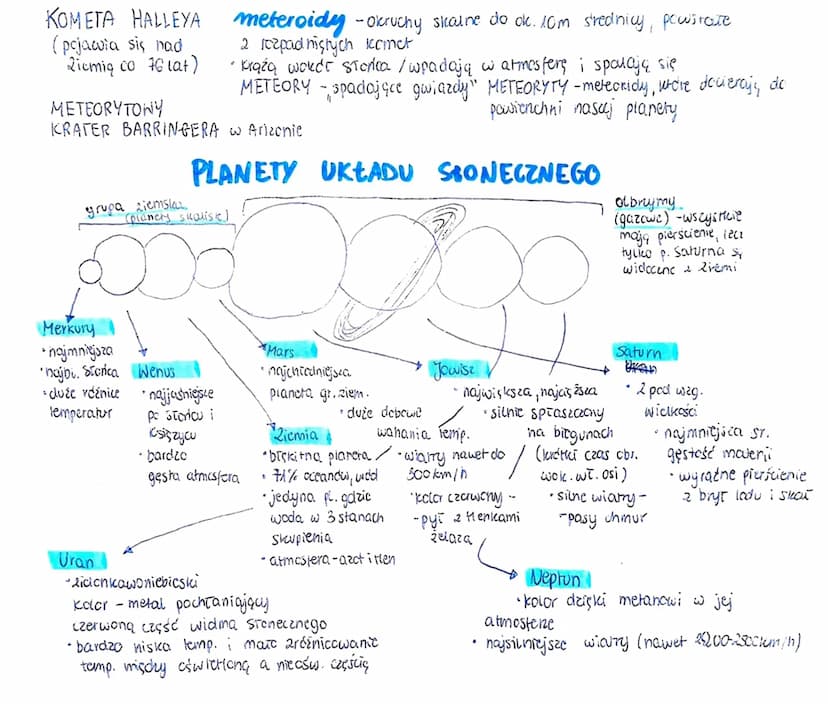 KOMETA HALLEYA
(pojawia się nad
Ziemią co 76 lat)
METEORYTOWY
KRATER BARRINGERA w Arizonie
meteroidy - okruchy skalne do ok. 10m średnicy, powstałe
z rozpadniętych komet
• krążą wokół Słońca / wpadają w atmosferę i spalają się
METEORY - „spadające gwiazdy" METEORYTY - meteoroidy, które docierają do
powierzchni naszej planety
PLANETY UKŁADU SŁONECZNEGO
grupa ziemska
(planety skaliste)
olbrzymy
(gazowe) - wszystkie
mają pierścienie, lecz
tylko p. Saturna są
widoczne z Ziemi
Merkury
• najmniejsza
• najbl. Słońca
• duże różnice
temperatur
Wenus
• najjaśniejsze
po Słońcu i
księżycu
• bardzo
gęsta atmosfera
Mars
• najchłodniejsza
planeta gr. ziem.
• duże dobowe
wahania temp.
• wiatry nawet do
500 km/h
• kolor czerwony -
- pył z tlenkami
żelaza
Ziemia
• błękitna planeta
• 71% oceanów, wód
• jedyna pl. gdzie
woda w 3 stanach
skupienia
• atmosfera - azot i tlen
Jowisz
• największa, najcięższa
• silnie spłaszczony
na biegunach
(krótki czas obr.
wok. wł. osi)
• silne wiatry -
- pasy chmur
Saturn
Uran
• 2 pod wzg.
wielkości
• najmniejsza śr.
gęstość materii
• wyraźne pierścienie
z brył lodu i skał
Uran
• zielonkawoniebieski
kolor - metal pochłaniający
czerwoną część widma słonecznego
• bardzo niska temp. i małe zróżnicowanie
temp. między oświetloną a nieośw. częścią
Neptun
• kolor dzięki metanowi w jej
atmosferze
• najsilniejsze wiatry (nawet 2200-2500km/h)